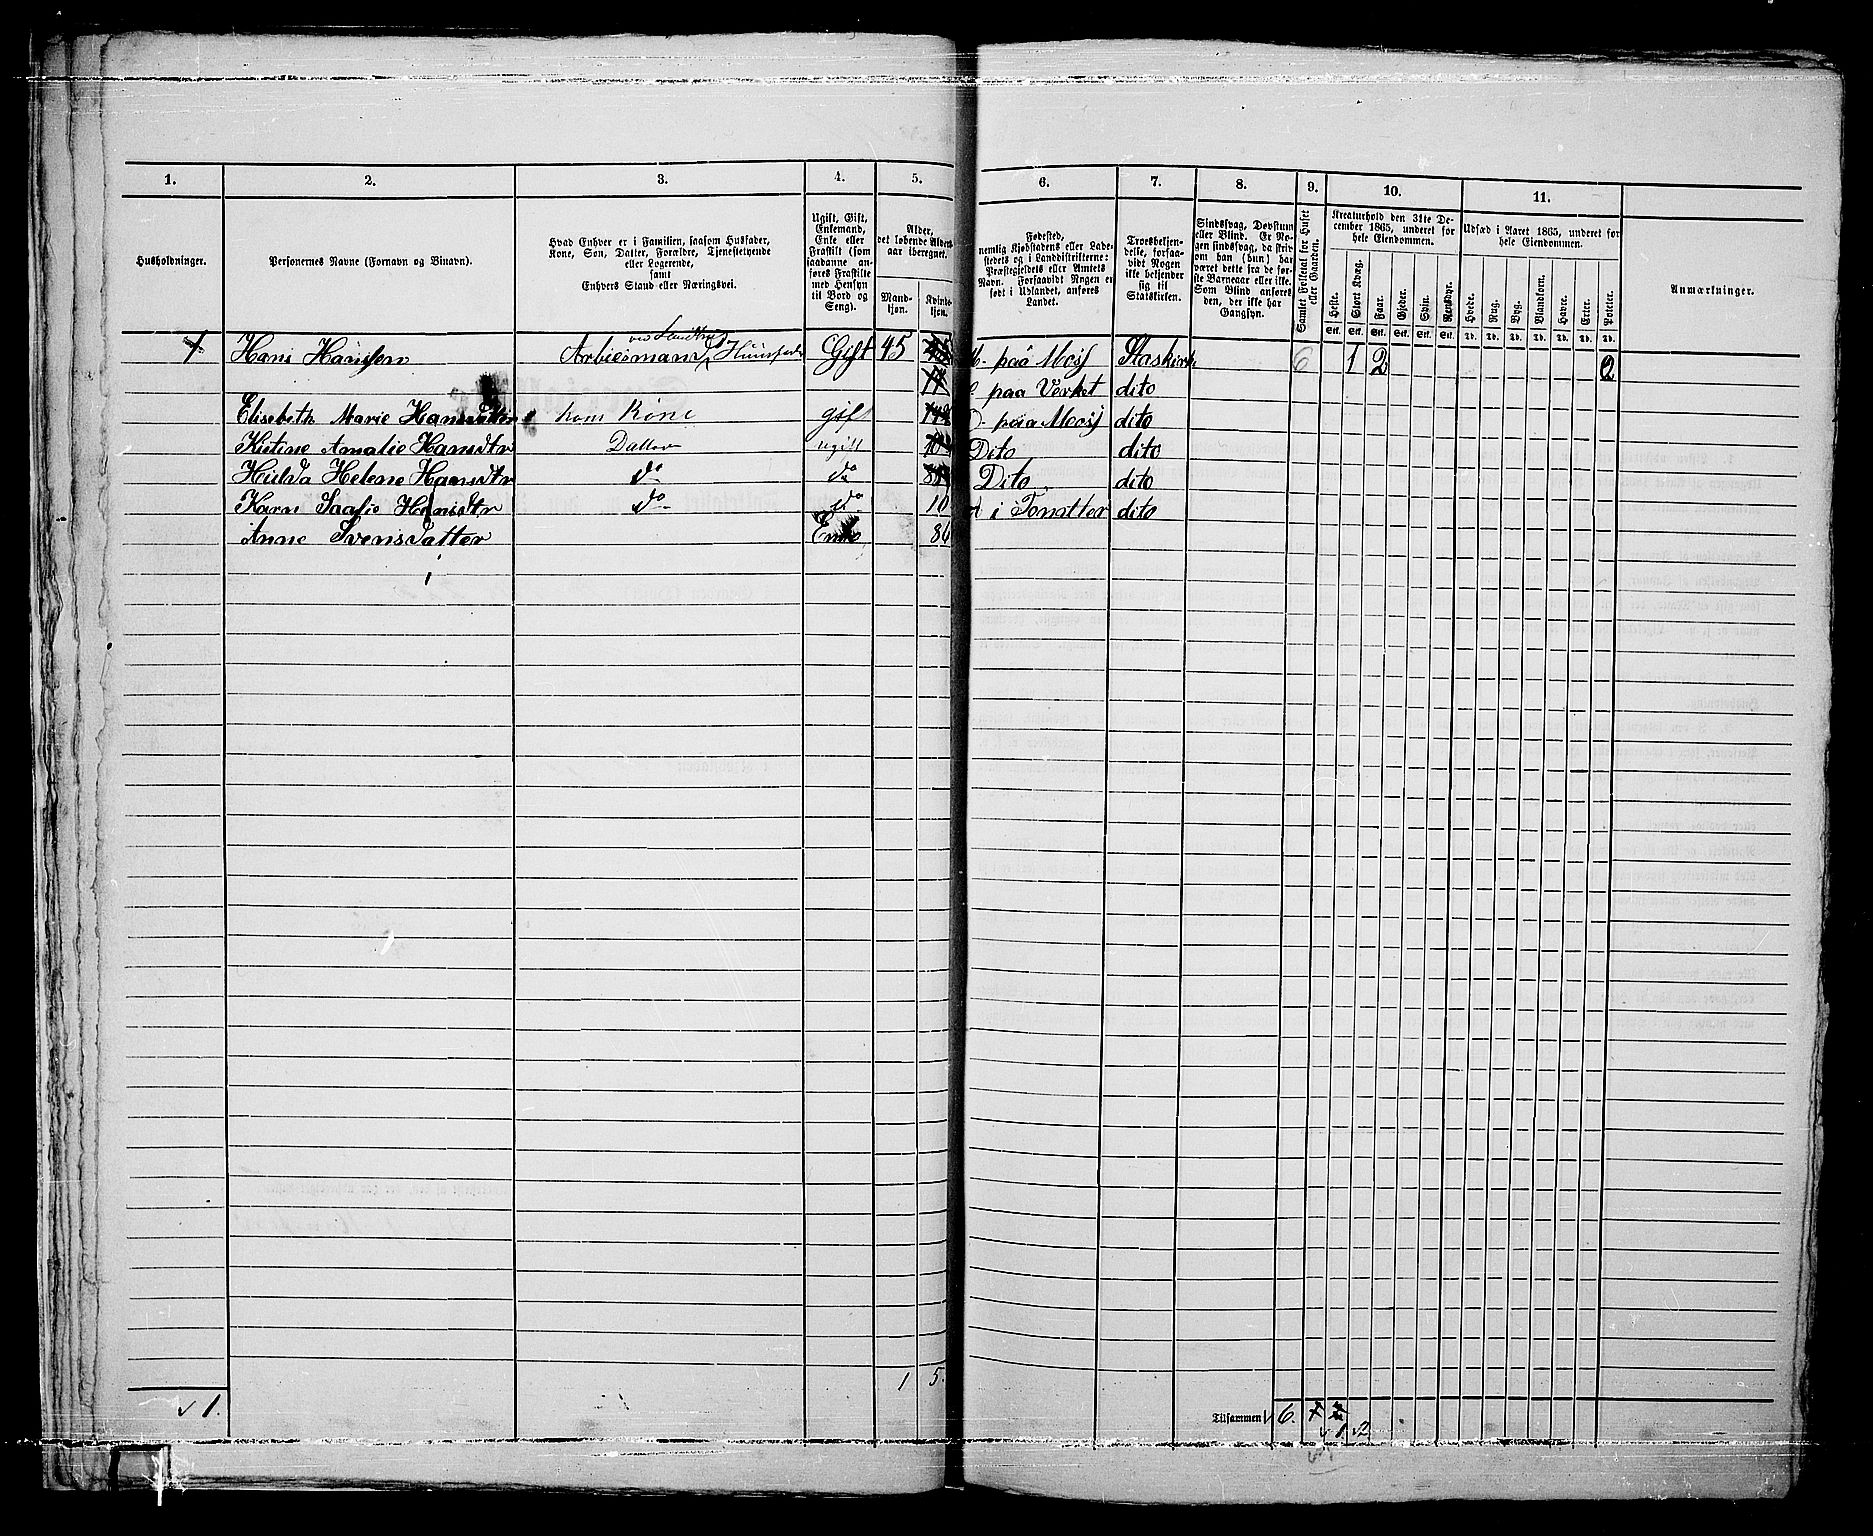 1. 2. 3. 4. 5. 6. 7. 8. 9. 10. 11.
Husholdninger.
Personernes Navne (Fornavn og Binavn).
Hvad Enhver er i Familien, saasom Husfader,
Kone, Søn, Datter, Forældre, Tjenestetyende
eller Logerende,
samt
Enhvers Stand eller Næringsvei.
Ugift, Gift,
Enkemand,
Enke eller
Fraskilt (som
saadanne an-
føres Fraskilte
med Hensyn
til Bord og
Seng).
Alder,
det løbende Alders-
aar iberegnet.
Mand-
kjøn.
Kvinde-
kjøn.
Fødested,
nemlig Kjøbstadens eller Lade-
stedets og i Landdistrikterne:
Præstegjeldets eller Amtets
Navn. Forsaavidt Nogen er
født i Udlandet, anføres
Landet.
Troesbekjen-
delse, forsaa-
vidt Nogen
ikke bekjender
sig til
Statskirken.
Sindssvag, Døvstum
eller Blind. Er No-
gen sindssvag, da skrid-
om han (hun) har
været dette fra de før-
ste Barneaar eller ikke.
Som Blind anføres
den, der ikke har
Gangsyn.
Samlet Folketal for Huset
eller Gaarden.
Kreaturhold den 31te De-
cember 1865, underet for
hele Eiendommen.
Heste. Stort Kvæg. Faar. Gjeder. Svin. Rensdyr.
Stk. Stk. Stk. Stk. Stk. Stk.
Udsæd i Aaret 1865, underet for
hele Eiendommen.
Hvede. Rug. Byg. Blandkorn. Havre. Erter. Poteter.
Td. Td. Td. Td. Td. Td. Td.
Anmærkninger.
Hans Hansen Gift 45 paa Moss 6 1 2 2
paa Verket dito
Elisebeth Marie hans Kone gift paa Moss dito
Kistine Amalie Hansdtr Datter ugift Dito dito
Hulda Helene Hansdtr do do Dito dito
Karn Hansdtr do do 10 i dito
Anne Svensdatter Enke 86
1 5
v 1. Tilsammen 6.
v 1 v2